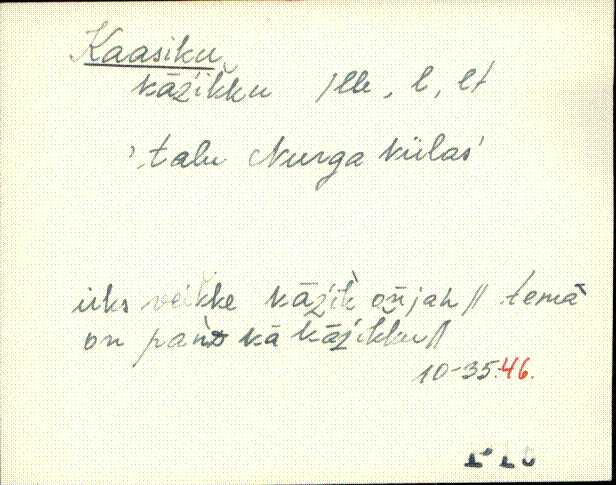 Kaasiku
kāźikku /lle, l, lt
'talu Nurga külas'
üks veikke kāźiK oñjah // temä
on pañD kā kāźikku //
10-35.46.